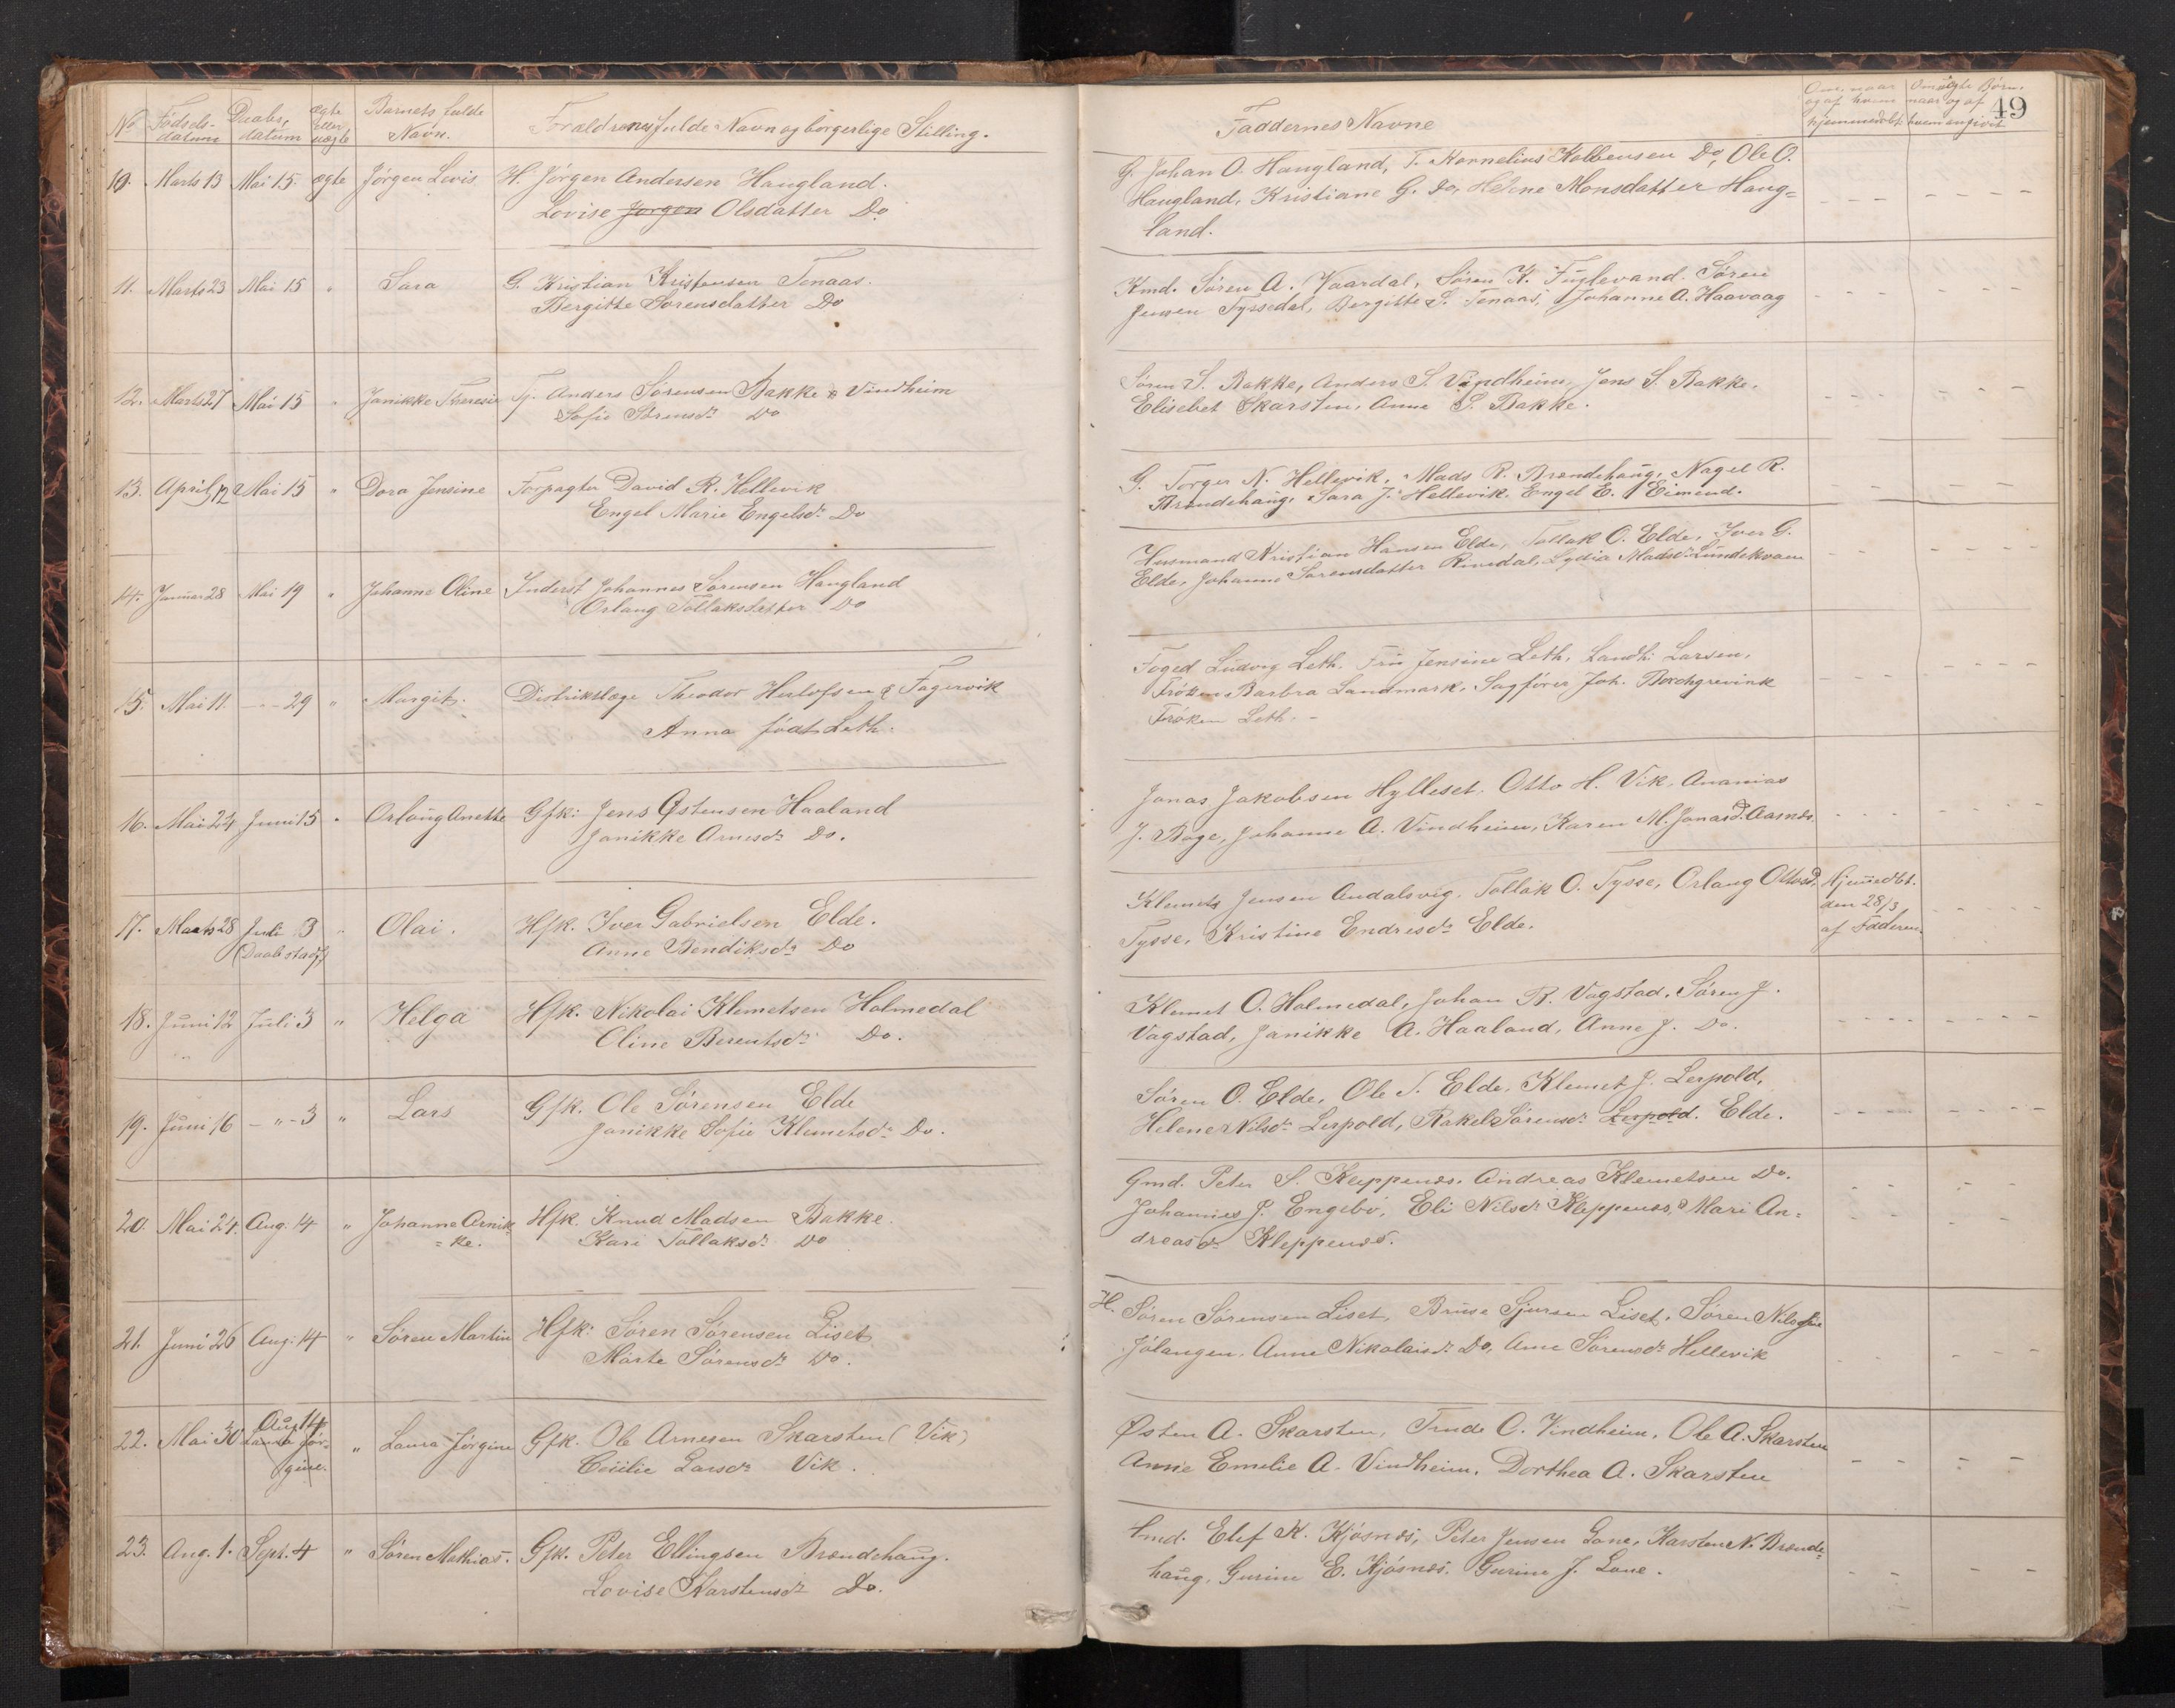 No Fødsels- datum Daabs- datum ægte eller uægte Barnets fulde Navn. Forældrenes fulde Navn og borgerlige Stilling.
10. Marts 13 Mai 15. ægte Jørgen Lovis H. Jørgen Andersen Haugland.
Lovise Jørgen Olsdatter Do
11. Marts 23 Mai 15 " Sara G. Kristian Kristensen Tenaas.
Bergitte Sørensdatter Do
12. Marts 27 Mai 15 " Janikke Theresie Tj. Anders Sørensen Bakke & Vindheim
Sofie Sørensdr Do
13. April 12 Mai 15 " Dora Jensine Forpagter David R. Hellevik
Engel Marie Engelsdr Do
14. Januar 28 Mai 19 " Johanne Oline Inderst Johannes Sørensen Haugland
Orlaug Tollaksdatter Do
15. Mai 11. - " - 29 " Margit. Distriktslæge Theodor Herlofsen & Fagervik
Anna født Leth.
16. Mai 24 Juni 15 " Orlaug Anette Gfk: Jens Østensen Haaland
Janikke Arnesdr Do.
17. Marts 28 Juli 3 " Olai. Hfk. Iver Gabrielsen Elde.
(Daabstadf.) Anne Bendiksdr Do
18. Juni 12 Juli 3 " Helga Hfk. Nikolai Klemetsen Holmedal
Oline Berentsdr Do.
19. Juni 16 - " - 3 " Lars Gfk. Ole Sørensen Elde
Janikke Sofie Klemetsdr Do.
20. Mai 24. Aug. 14 " Johanne Arnik- Hfk. Knud Madsen Bakke.
=ke. Kari Tollaksdr Do
21. Juni 26 Aug. 14 " Søren Martin Hfk: Søren Sørensen Liset
Marte Sørensdr Do.
22. Mai 30 Aug 14 Laura Jør-
gine. " Laura Jørgine Gfk. Ole Arnesen Skarsten (Vik)
Cecilie Larsdr Vik.
23. Aug. 1. Sept. 4 " Søren Mathias. Gfk. Peter Ellingsen Brændehaug.
Lovise Karstensdr Do.
Faddernes Navne
Om, naar og af hvem hjemmedøbt. Om uægte Børn, naar og af hvem angivet 49
G. Johan O. Haugland, T. Kornelius Kolbensen Do, Ole O.
Haugland, Kristiane G. Do, Helene Monsdatter Haug=
land.
Kmd. Søren A. Vaardal, Søren K. Fuglevand. Søren
Jensen Tyssedal, Bergitte S. Tenaas, Johanne A. Haavaag
Søren S. Bakke, Anders S. Vindheim, Jens S. Bakke,
Elisebet Skarsten, Anne S. Bakke.
G. Torger N. Hellevik, Mads R. Brændehaug, Nagel R.
Brændehaug, Sara J. Hellevik. Engel E. Eimend.
Husmand Kristian Hansen Elde, Tollak O. Elde, Iver G.
Elde, Johanne Sørensdatter Rivedal, Lydia Madsdr Lundekvam
Foged Ludvig Leth. Fru Jensine Leth, Landh. Larsen,
Frøken Barbra Landmark, Sagfører Joh. Borchgrevink
Frøken Leth. -
Jonas Jakobsen Hylleset. Otto H. Vik, Ananias
J. Bøge, Johanne A. Vindheim, Karen M. Jonasd. Aasnes.
Klemets Jensen Andalsvig. Tollak O. Tysse, Orlaug Ottosd. Hjemmedbt.
den 28/3
Tysse, Kristine Endresdr Elde. af Faderen.
Klemet O. Holmedal, Johan R. Vagstad, Søren J.
Vagstad, Janikke A. Haaland, Anne J. Do.
Søren O. Elde, Ole T. Elde, Klemet J. Lerpold,
Helene Nilsdr Lerpold, Rakel Sørensdr Lerpold. Elde.
Gmd. Peter S. Kleppenes. Andreas Klemetsen Do.
Johannes J. Engebø, Eli Nilsdr Kleppenes, Mari An=
dreasdr Kleppenes.
H. Søren Sørensen Liset, Bruse Sjursen Liset, Søren Nilsen
Jølangen, Anne Nikolaisdr Do, Ane Sørensdr Hellevik
Østen A. Skarsten, Trude O. Vindheim, Ole A. Skarsten
Anne Emelie A. Vindheim. Dorthea A. Skarsten
Smd. Elef K. Kjøsnes, Peter Jensen Lone, Karsten N. Brænde=
haug, Gurine E. Kjøsnes. Gurine J. Lone.